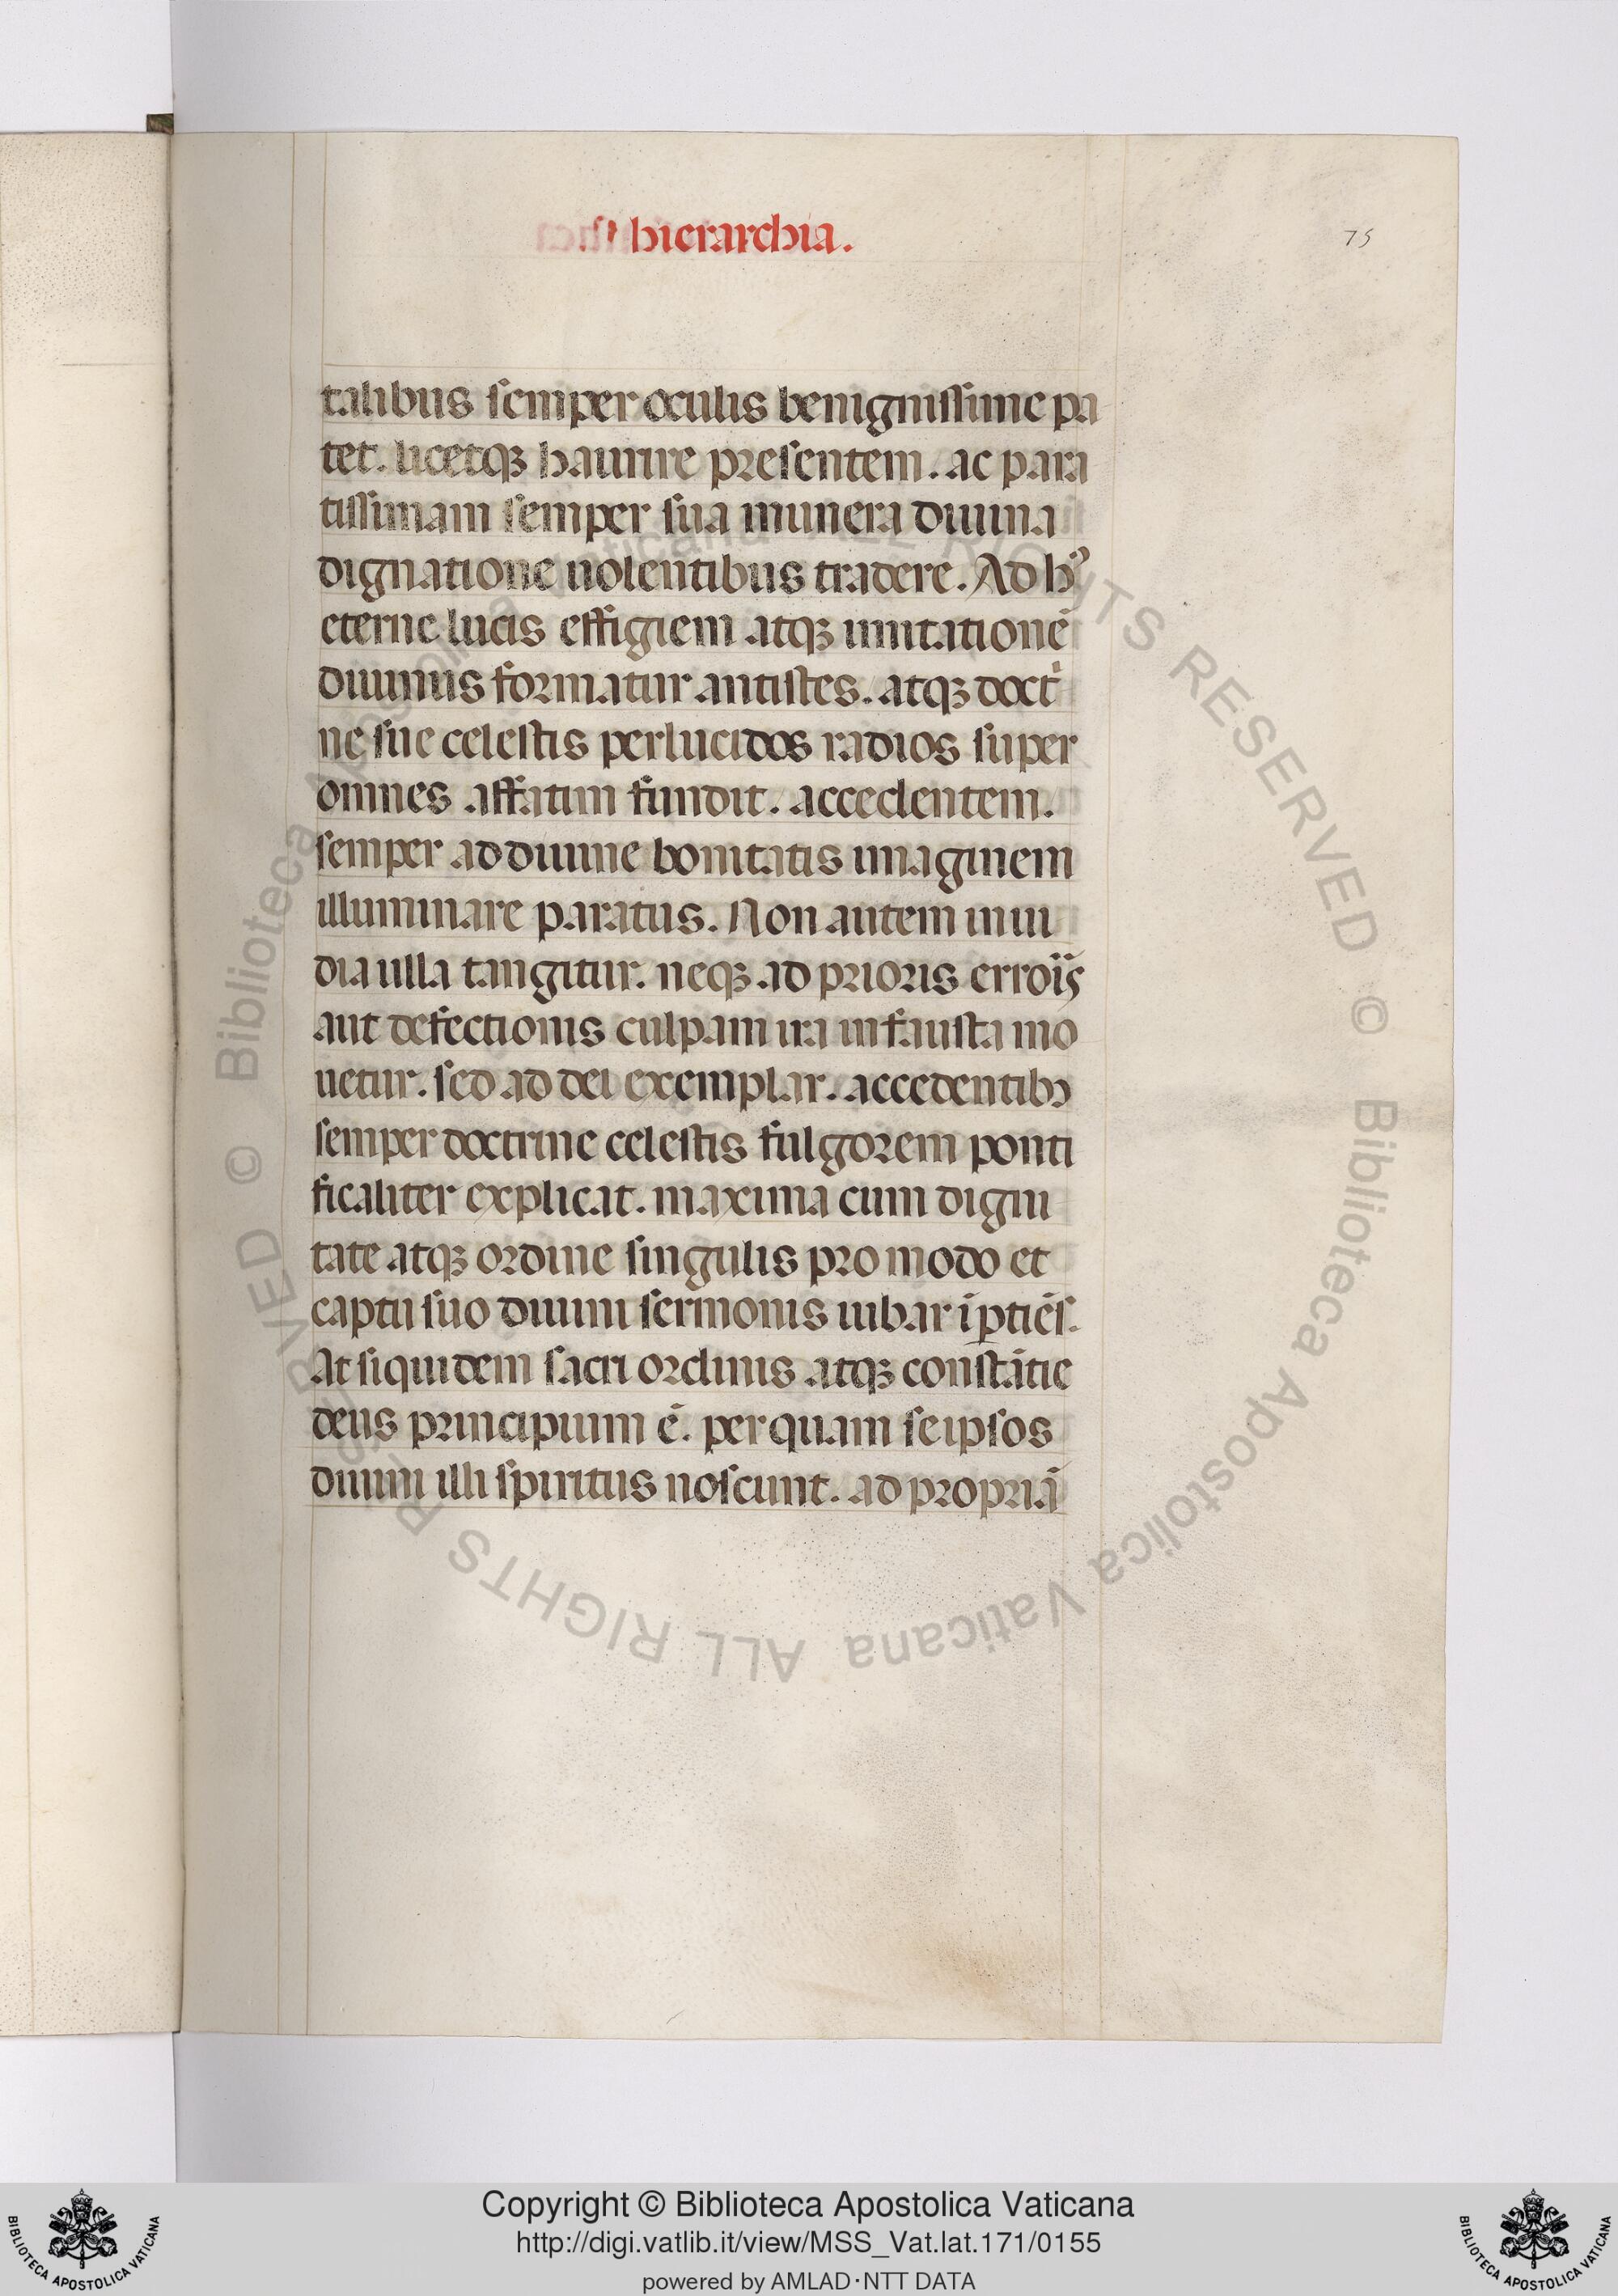 hierarchia.
75
talibus semper oculis benignissime pa
tet. licetqꝫ haurire presentem. ac para
tissimam semper sua munera diuina
dignatione uolentibus tradere. Ad hꝰ
eterne lucis effigiem atqꝫ imitationē
diuinus formatur antistes. atqꝫ doctⁱ
ne sue celestis perlucidos radios super
omnes affatim fundit. accedentem.
semper ad diuine bonitatis imaginem
illuminare paratus. Non autem inui
dia ulla tangitur. neqꝫ ad prioris erroris
aut defectionis culpam ira infausta mo
uetur. sed ad dei exemplar. accedentibꝫ
semper doctrine celestis fulgorem ponti
ficaliter explicat. maxima cum digni
tate atqꝫ ordine singulis pro modo et
captu suo diuini sermonis iubar īptiēs.
At siquidem sacri ordinis atqꝫ constātie
deus principium ē. per quam seipsos
diuini illi spiritus noscunt. ad propriā
Biblioteca Apostolica Vaticana ALL RIGHTS RESERVED © Biblioteca Apostolica Vaticana ALL RIGHTS RESERVED ©
Copyright © Biblioteca Apostolica Vaticana
http://digi.vatlib.it/view/MSS_Vat.lat.171/0155
powered by AMLAD·NTT DATA
BIBLIOTECA APOSTOLICA VATICANA
BIBLIOTECA APOSTOLICA VATICANA